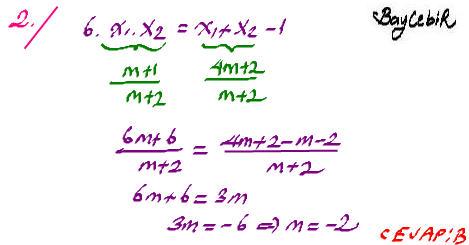 2./ 6. x₁. x₂ = x₁ + x₂ - 1 BayCebiR
m+1/m+2 4m+2/m+2
6m+6/m+2 = 4m+2-m-2/m+2
6m+6 = 3m
3m = -6 ⇒ m = -2
CEVAP: B